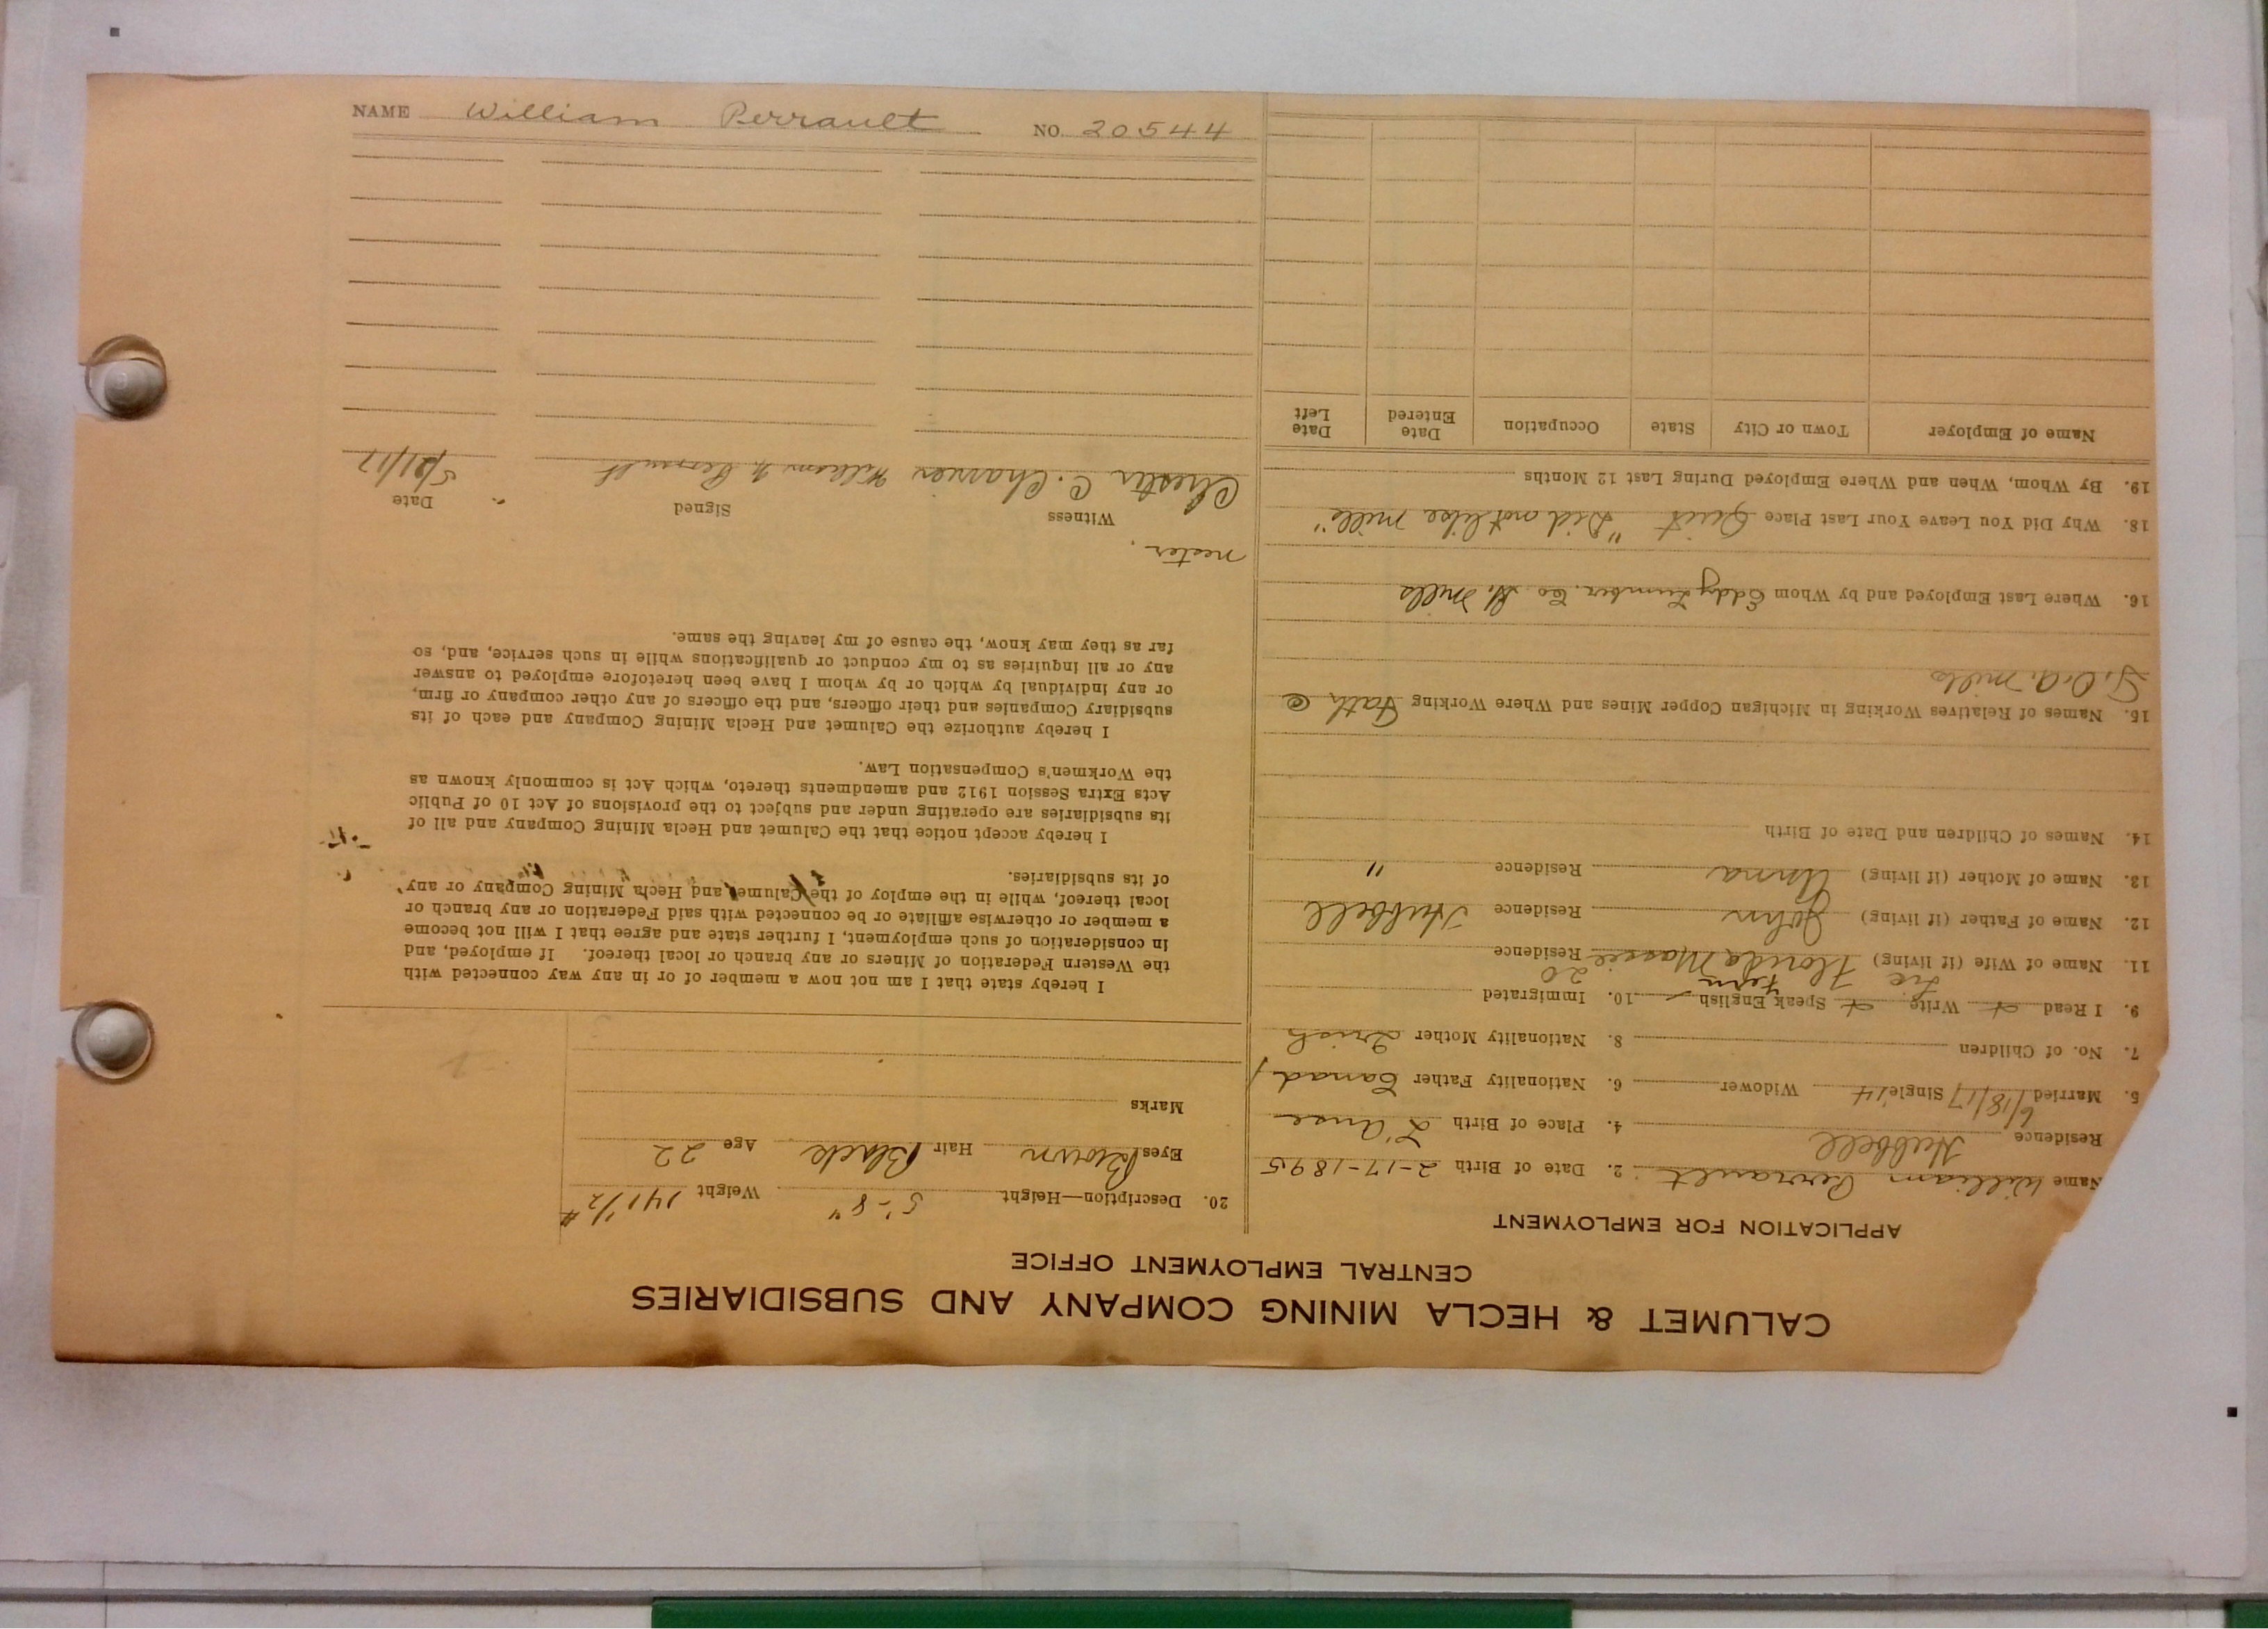 CALUMET & HECLA MINING COMPANY AND SUBSIDIARIES
CENTRAL EMPLOYMENT OFFICE
APPLICATION FOR EMPLOYMENT
Name William Perrault 2. Date of Birth 2-17-1895
Residence Hubbell 4. Place of Birth L'Anse
5. Married 6/18/17 Single Widower 6. Nationality Father Canad
7. No. of Children 8. Nationality Mother Irish
9. I Read Write Speak English 10. Immigrated
11. Name of Wife (if living) Florida Massie Residence
12. Name of Father (if living) John Residence Hubbell
13. Name of Mother (if living) Anna Residence "
14. Names of Children and Date of Birth
15. Names of Relatives Working in Michigan Copper Mines and Where Working Fath @
Mills
16. Where Last Employed and by Whom Eddy Lumber Co Mills
18. Why Did You Leave Your Last Place Quit "Did not like mill"
19. By Whom, When and Where Employed During Last 12 Months
Name of Employer Town or City State Occupation Date Entered Date Left
20. Description—Height 5'-8" Weight 141 1/2 #
Eyes Brown Hair Black Age 22
Marks
I hereby state that I am not now a member of or in any way connected with
the Western Federation of Miners or any branch or local thereof. If employed, and
in consideration of such employment, I further state and agree that I will not become
a member or otherwise affiliate or be connected with said Federation or any branch or
local thereof, while in the employ of the Calumet and Hecla Mining Company or any
of its subsidiaries.
I hereby accept notice that the Calumet and Hecla Mining Company and all of
its subsidiaries are operating under and subject to the provisions of Act 10 of Public
Acts Extra Session 1912 and amendments thereto, which Act is commonly known as
the Workmen's Compensation Law.
I hereby authorize the Calumet and Hecla Mining Company and each of its
subsidiary Companies and their officers, and the officers of any other company or firm,
or any individual by which or by whom I have been heretofore employed to answer
any or all inquiries as to my conduct or qualifications while in such service, and, so
far as they may know, the cause of my leaving the same.
Witness Signed Date
Chester C. William Perrault 5/21/17
NAME William Perrault NO. 20544